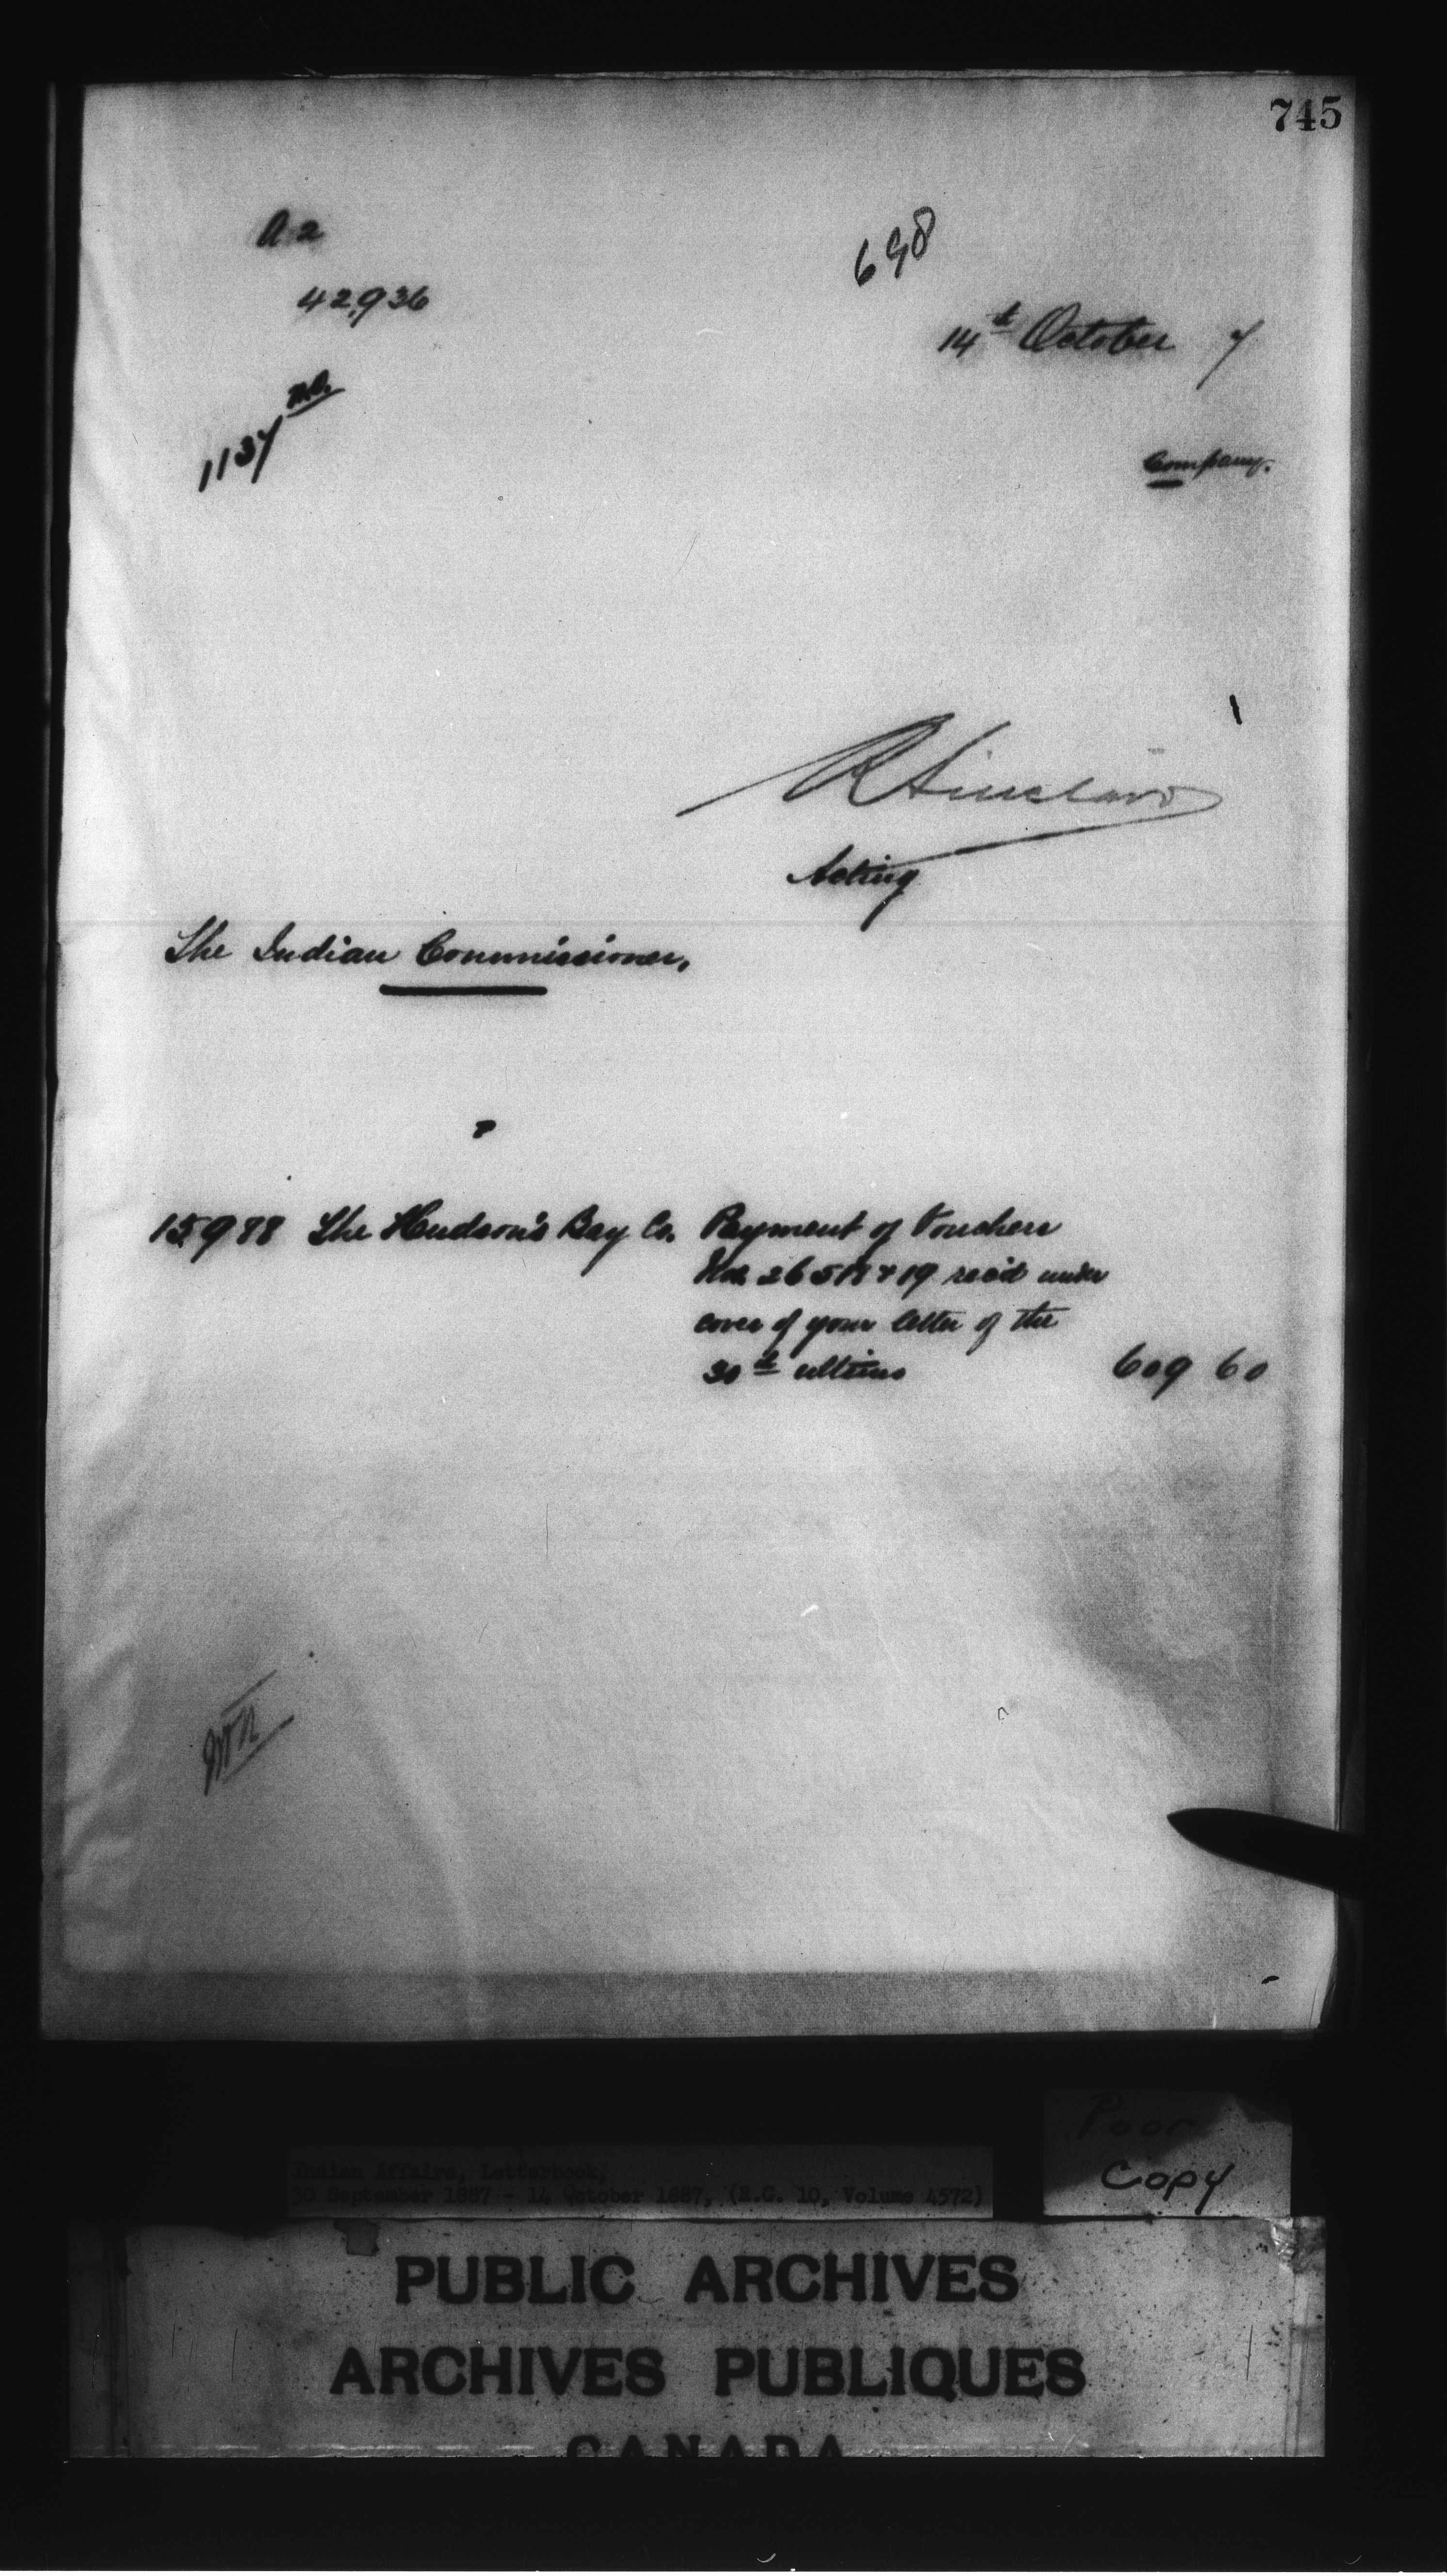 745
A 2
698
42,936
14th October 7
1137
Company.
R Sinclair
Acting
The Indian Commissioner,
15,988 The Hudson's Bay Co. Payment of Vouchers
Nos. 26518 & 19 rec'd under
cover of your letter of the
30th ultimo 609 60
Poor
Copy
Indian Affairs, Letterbook,
30 September 1887 - 14 October 1887, (R.G. 10, Volume 4572)
PUBLIC ARCHIVES
ARCHIVES PUBLIQUES
CANADA